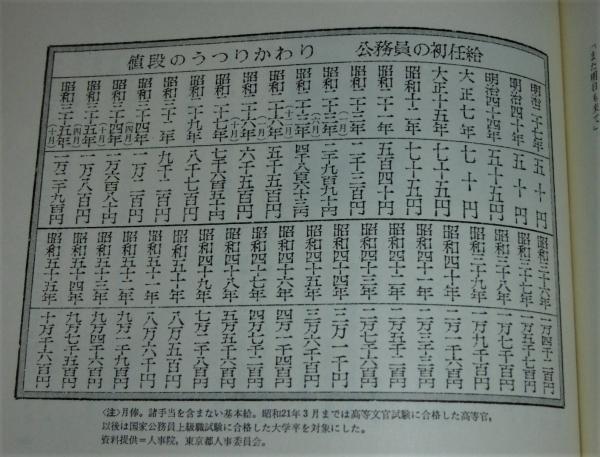 値段のうつりかわり　公務員の初任給
明治二十七年 五十円
明治四十年 五十円
明治四十四年 五十五円
大正七年 七十円
大正十五年 七十五円
昭和十二年 七十五円
昭和二十一年 五百四十円
昭和二十三年(一月) 二千三百円
昭和二十三年 二千九百九十円
昭和二十三年(十二月) 四千八百六十三円
昭和二十六年(一月) 五千五百円
昭和二十六年(十月) 六千五百円
昭和二十七年 七千六百五十円
昭和二十九年 八千七百円
昭和三十二年 九千二百円
昭和三十四年(四月) 一万二百円
昭和三十四年(十月) 一万六百八十円
昭和三十五年(四月) 一万八百円
昭和三十五年(十月) 一万二千九百円
昭和三十六年 一万四千二百円
昭和三十七年 一万五千七百円
昭和三十八年 一万七千百円
昭和三十九年 一万九千百円
昭和四十年 二万一千六百円
昭和四十一年
昭和四十二年
昭和四十三年
昭和四十四年 三万一千円
昭和四十五年 三万六千百円
昭和四十六年 四万一千四百円
昭和四十七年 四万七千二百円
昭和四十八年 五万五千六百円
昭和四十九年 七万二千八百円
昭和五十年 八万五百円
昭和五十一年 八万六千円
昭和五十二年 九万一千九百円
昭和五十三年 九万四千六百円
昭和五十四年 九万七千五百円
昭和五十五年 十万千六百円
〈注〉月俸。諸手当を含まない基本給。昭和21年3月までは高等文官試験に合格した高等官，
以後は国家公務員上級職試験に合格した大学卒を対象にした。
資料提供＝人事院，東京都人事委員会。